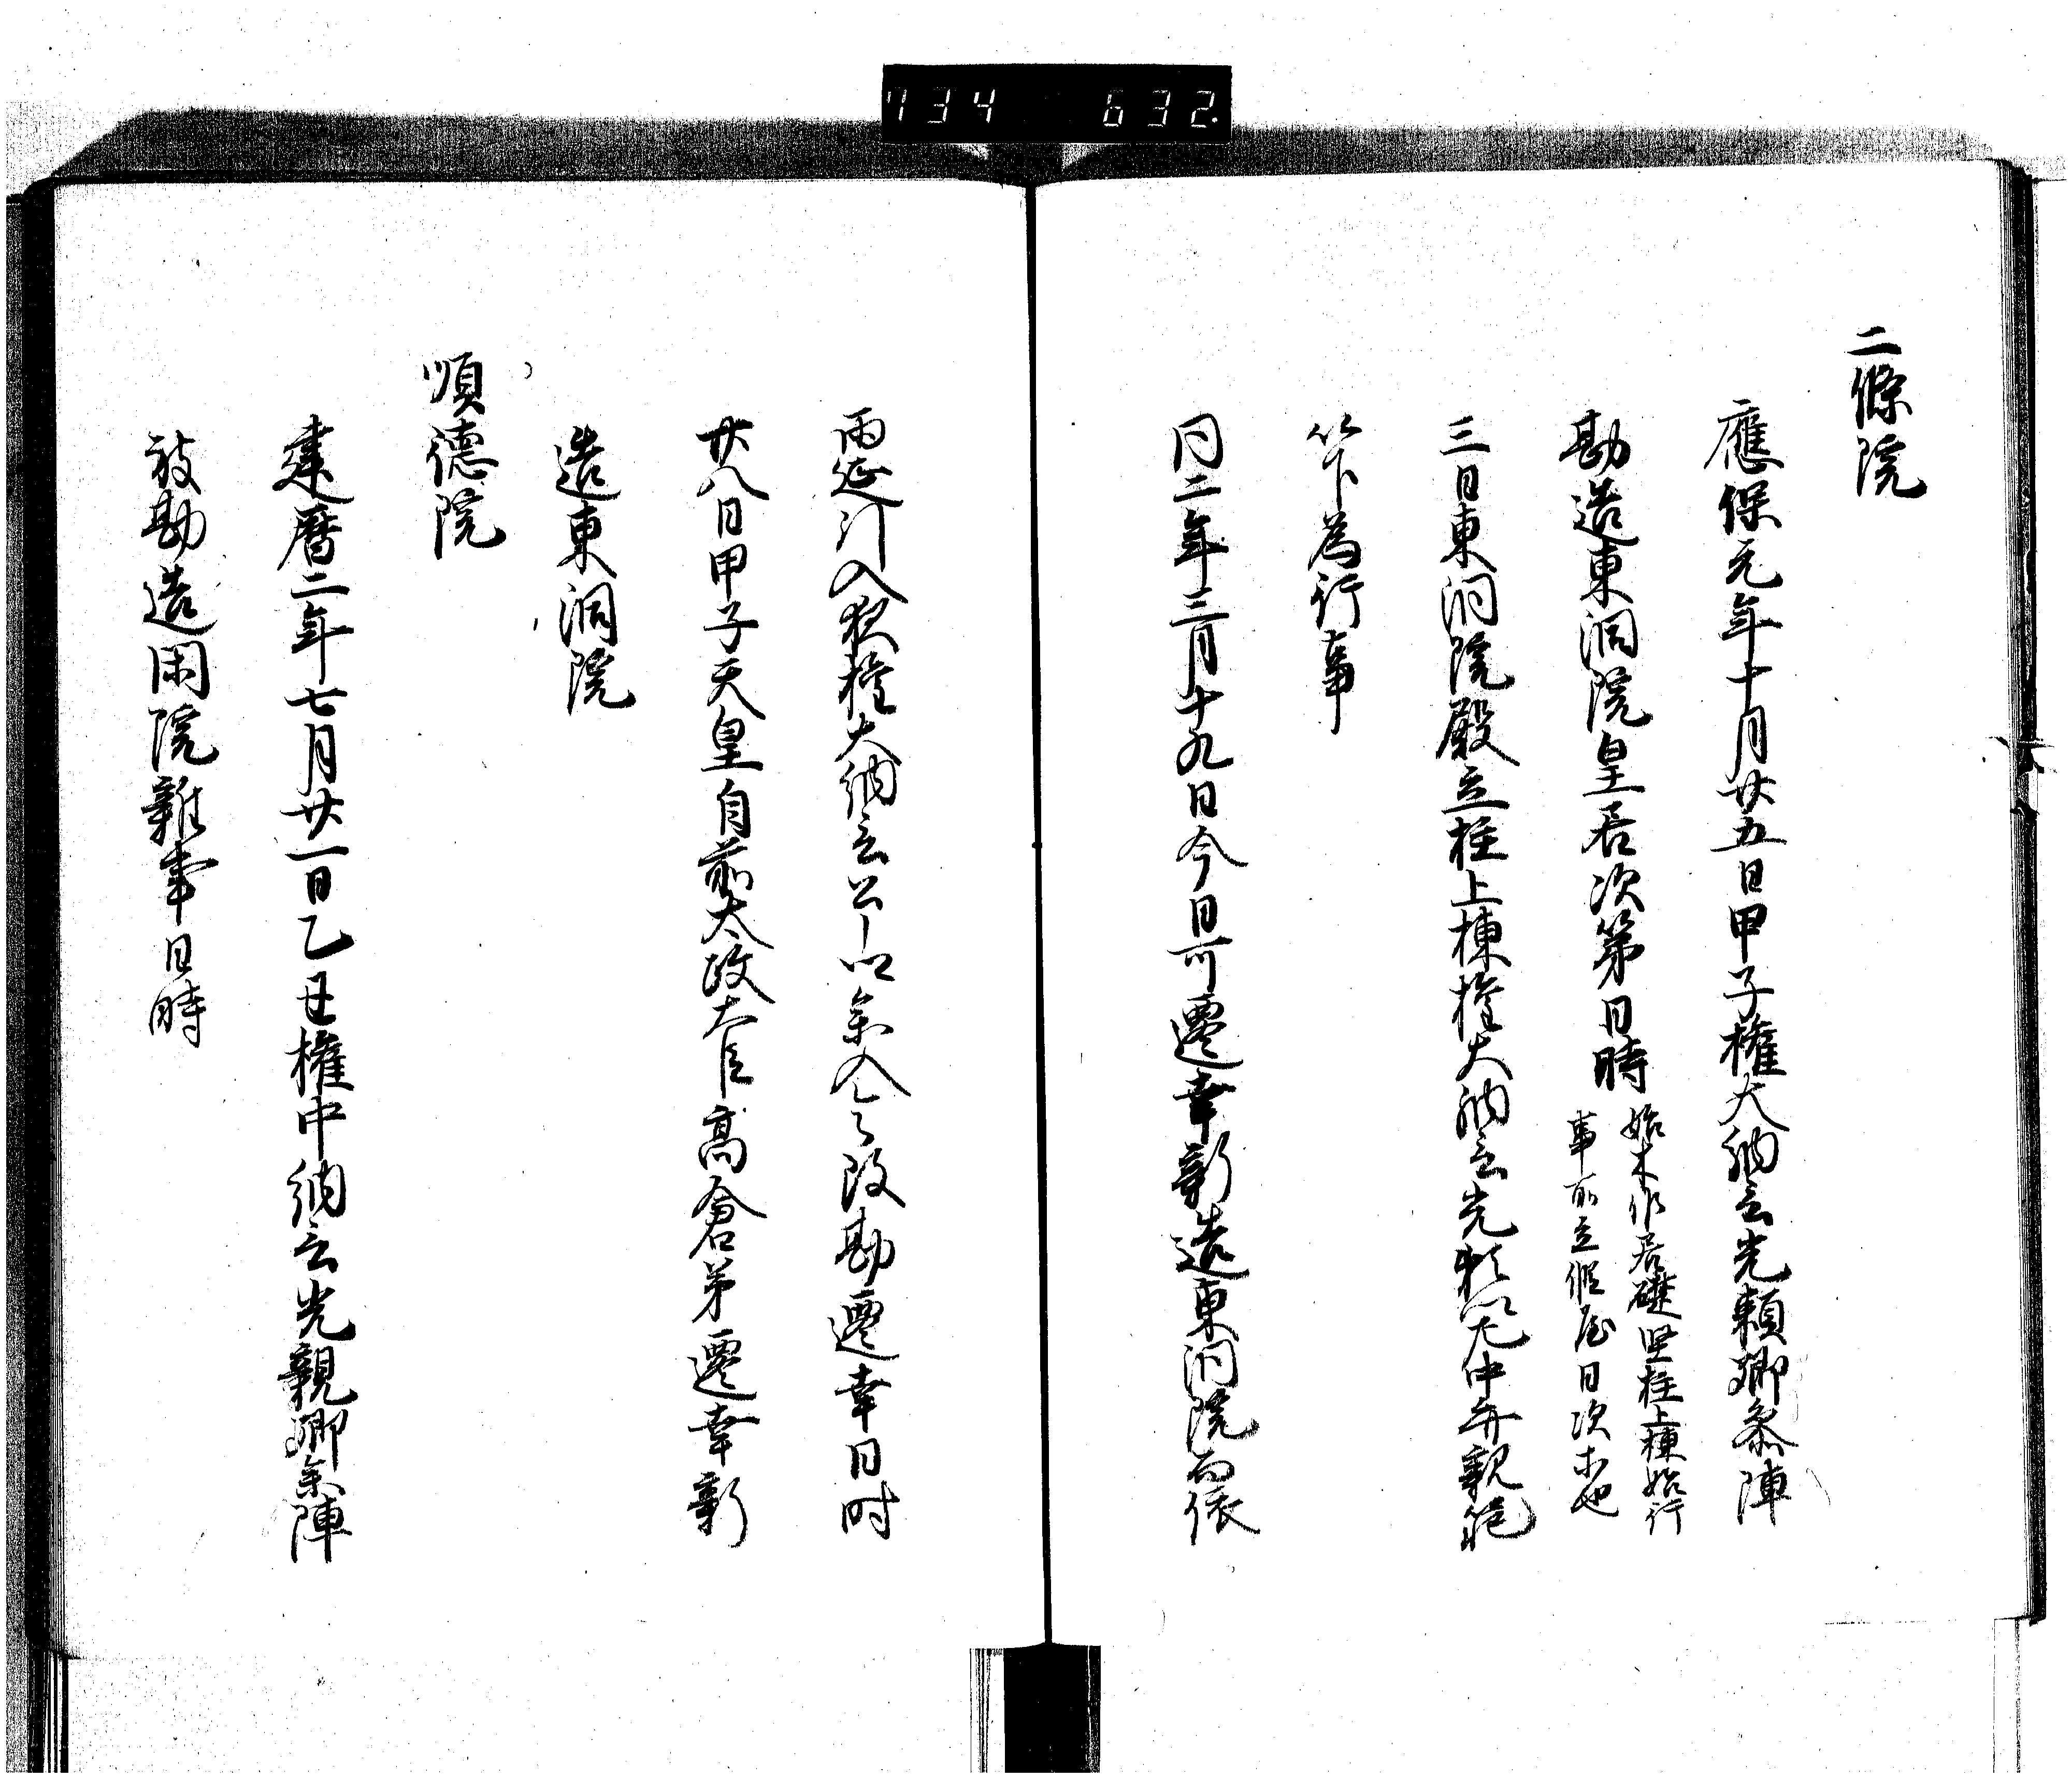 734 632
二條院
應保元年十月廿五日甲子權大納言光頼卿参陣
勘造東洞院皇居次第日時
始木作居礎竪柱上棟始行
事所立假屋日次木也
三日東洞院殿立柱上棟権大納言光頼以下中弁親範
以下為行事
同二年三月十九日今日可遷幸新造東洞院而依
雨延引入夜権大納言公
参入令改勘遷幸日时
廿八日甲子天皇自前太政大臣高倉第遷幸新
造東洞院
順德院
建曆二年七月廿一日乙丑權中納言光親卿参陣
被勘造閑院雜事日時